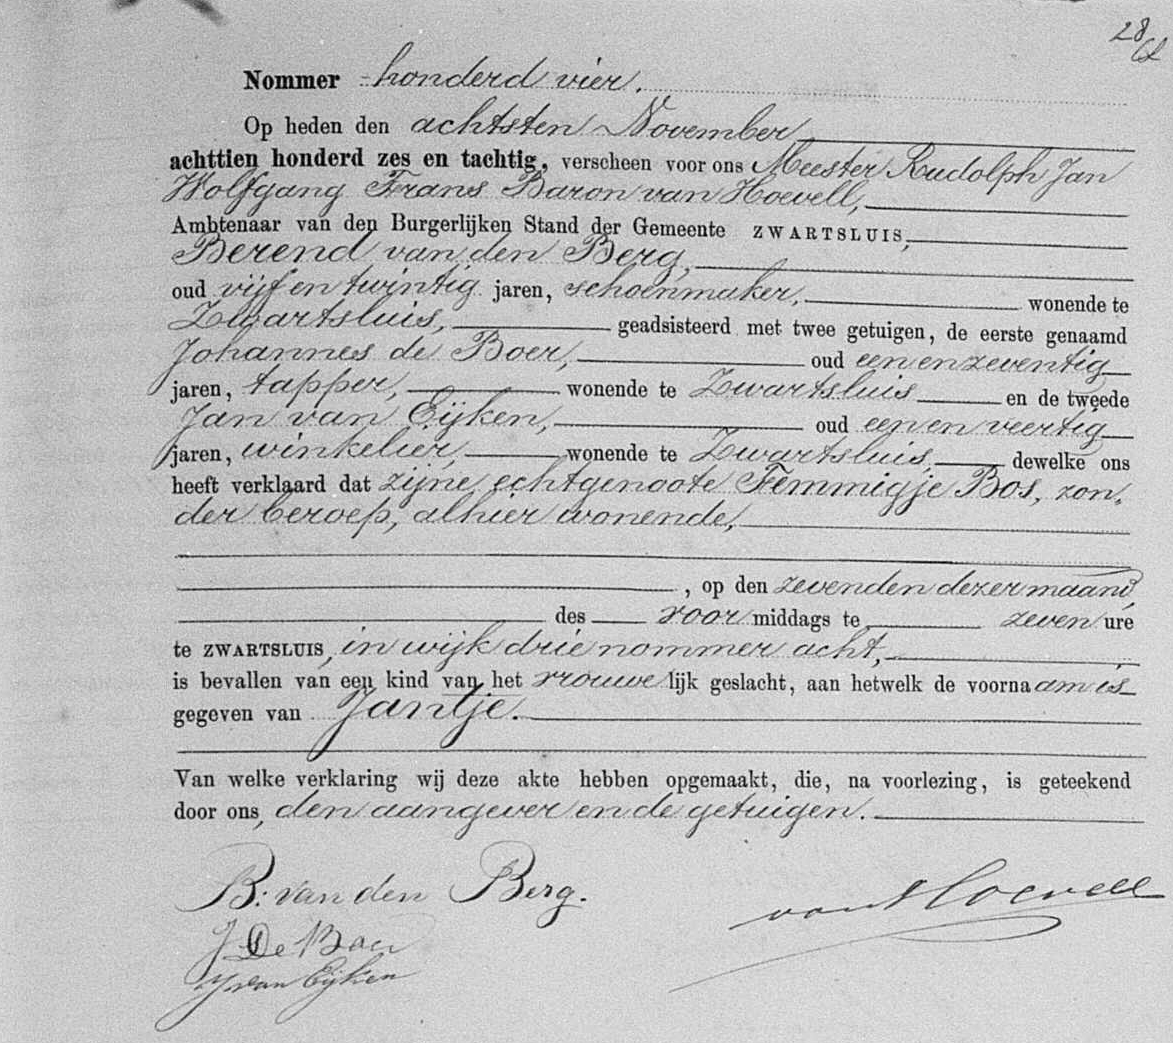 28
Nommer honderd vier.
Op heden den achtsten November
achttien honderd zes en tachtig, verscheen voor ons Meester Rudolph Jan
Wolfgang Frans Baron van Hoevell,
Ambtenaar van den Burgerlijken Stand der Gemeente ZWARTSLUIS,
Berend van den Berg,
oud vijf en twintig jaren, schoenmaker, wonende te
Zwartsluis, geadsisteerd met twee getuigen, de eerste genaamd
Johannes de Boer, oud een en zeventig
jaren, tapper, wonende te Zwartsluis en de tweede
Jan van Eijken, oud een en veertig
jaren, winkelier, wonende te Zwartsluis, dewelke ons
heeft verklaard dat zijne echtgenoote Femmigje Bos, zon-
der beroep, alhier wonende,
, op den zevenden dezer maand,
des voor middags te zeven ure
te ZWARTSLUIS, in wijk drie nommer acht,
is bevallen van een kind van het vrouwelijk geslacht, aan hetwelk de voornaam is
gegeven van Jantje.
Van welke verklaring wij deze akte hebben opgemaakt, die, na voorlezing, is geteekend
door ons, den aangever en de getuigen.
B. van den Berg.
van Hoevell
J De Boer
J van Eijken